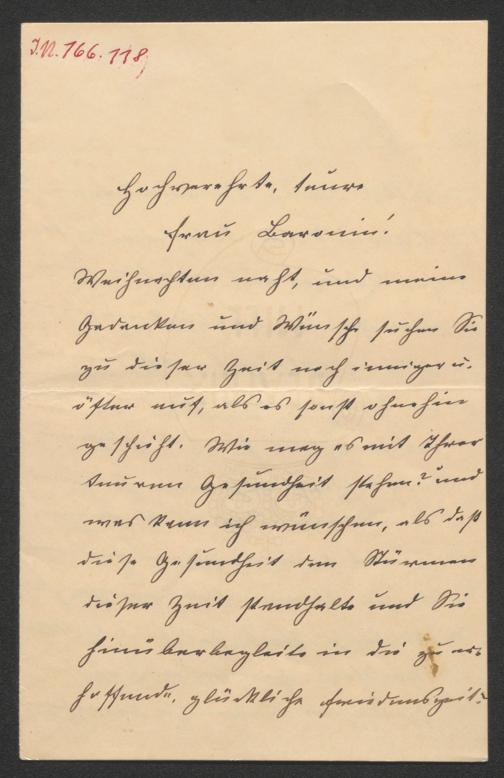 J.N. 166.118
Hochverehrte, teure
Frau Baronin!
Weihnachten naht, und meine
Gedanken und Wünsche suchen Sie
zu dieser Zeit noch inniger u.
öfter auf, als es sonst ohnehin
geschieht. Wie mag es mit Ihrer
teuren Gesundheit stehen? und
was kann ich wünschen, als daß
diese Gesundheit den Stürmen
dieser Zeit standhalte und Sie
hinüberbegleite in die zu er-
hoffende, glückliche Friedenszeit.